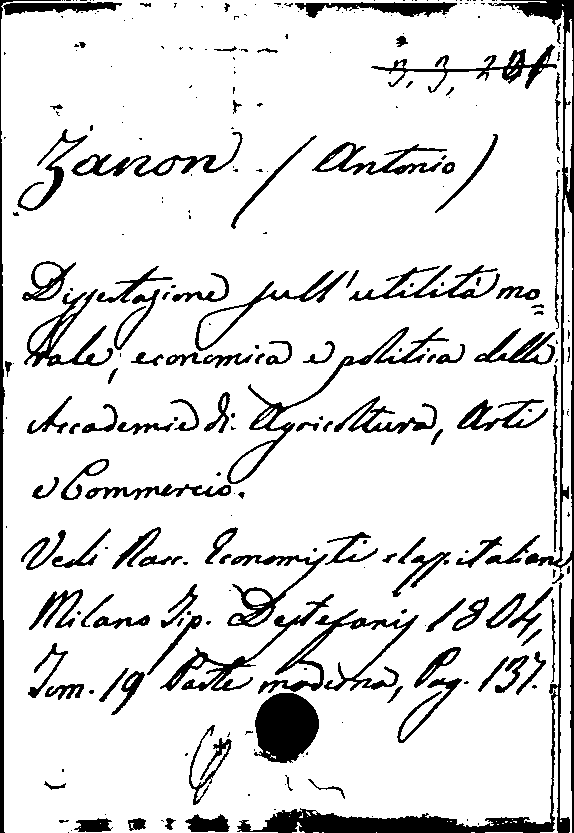 3, 3, 2
Zanon (Antonio)
Dissertazione sull'utilità mo=
rale, economica e politica delle
Accademie di Agricoltura, Arti
e Commercio.
Vedi Racc. Economisti class. italiani
Milano Tip. Destefanis 1804,
Tom. 19 Parte moderna, Pag. 137.